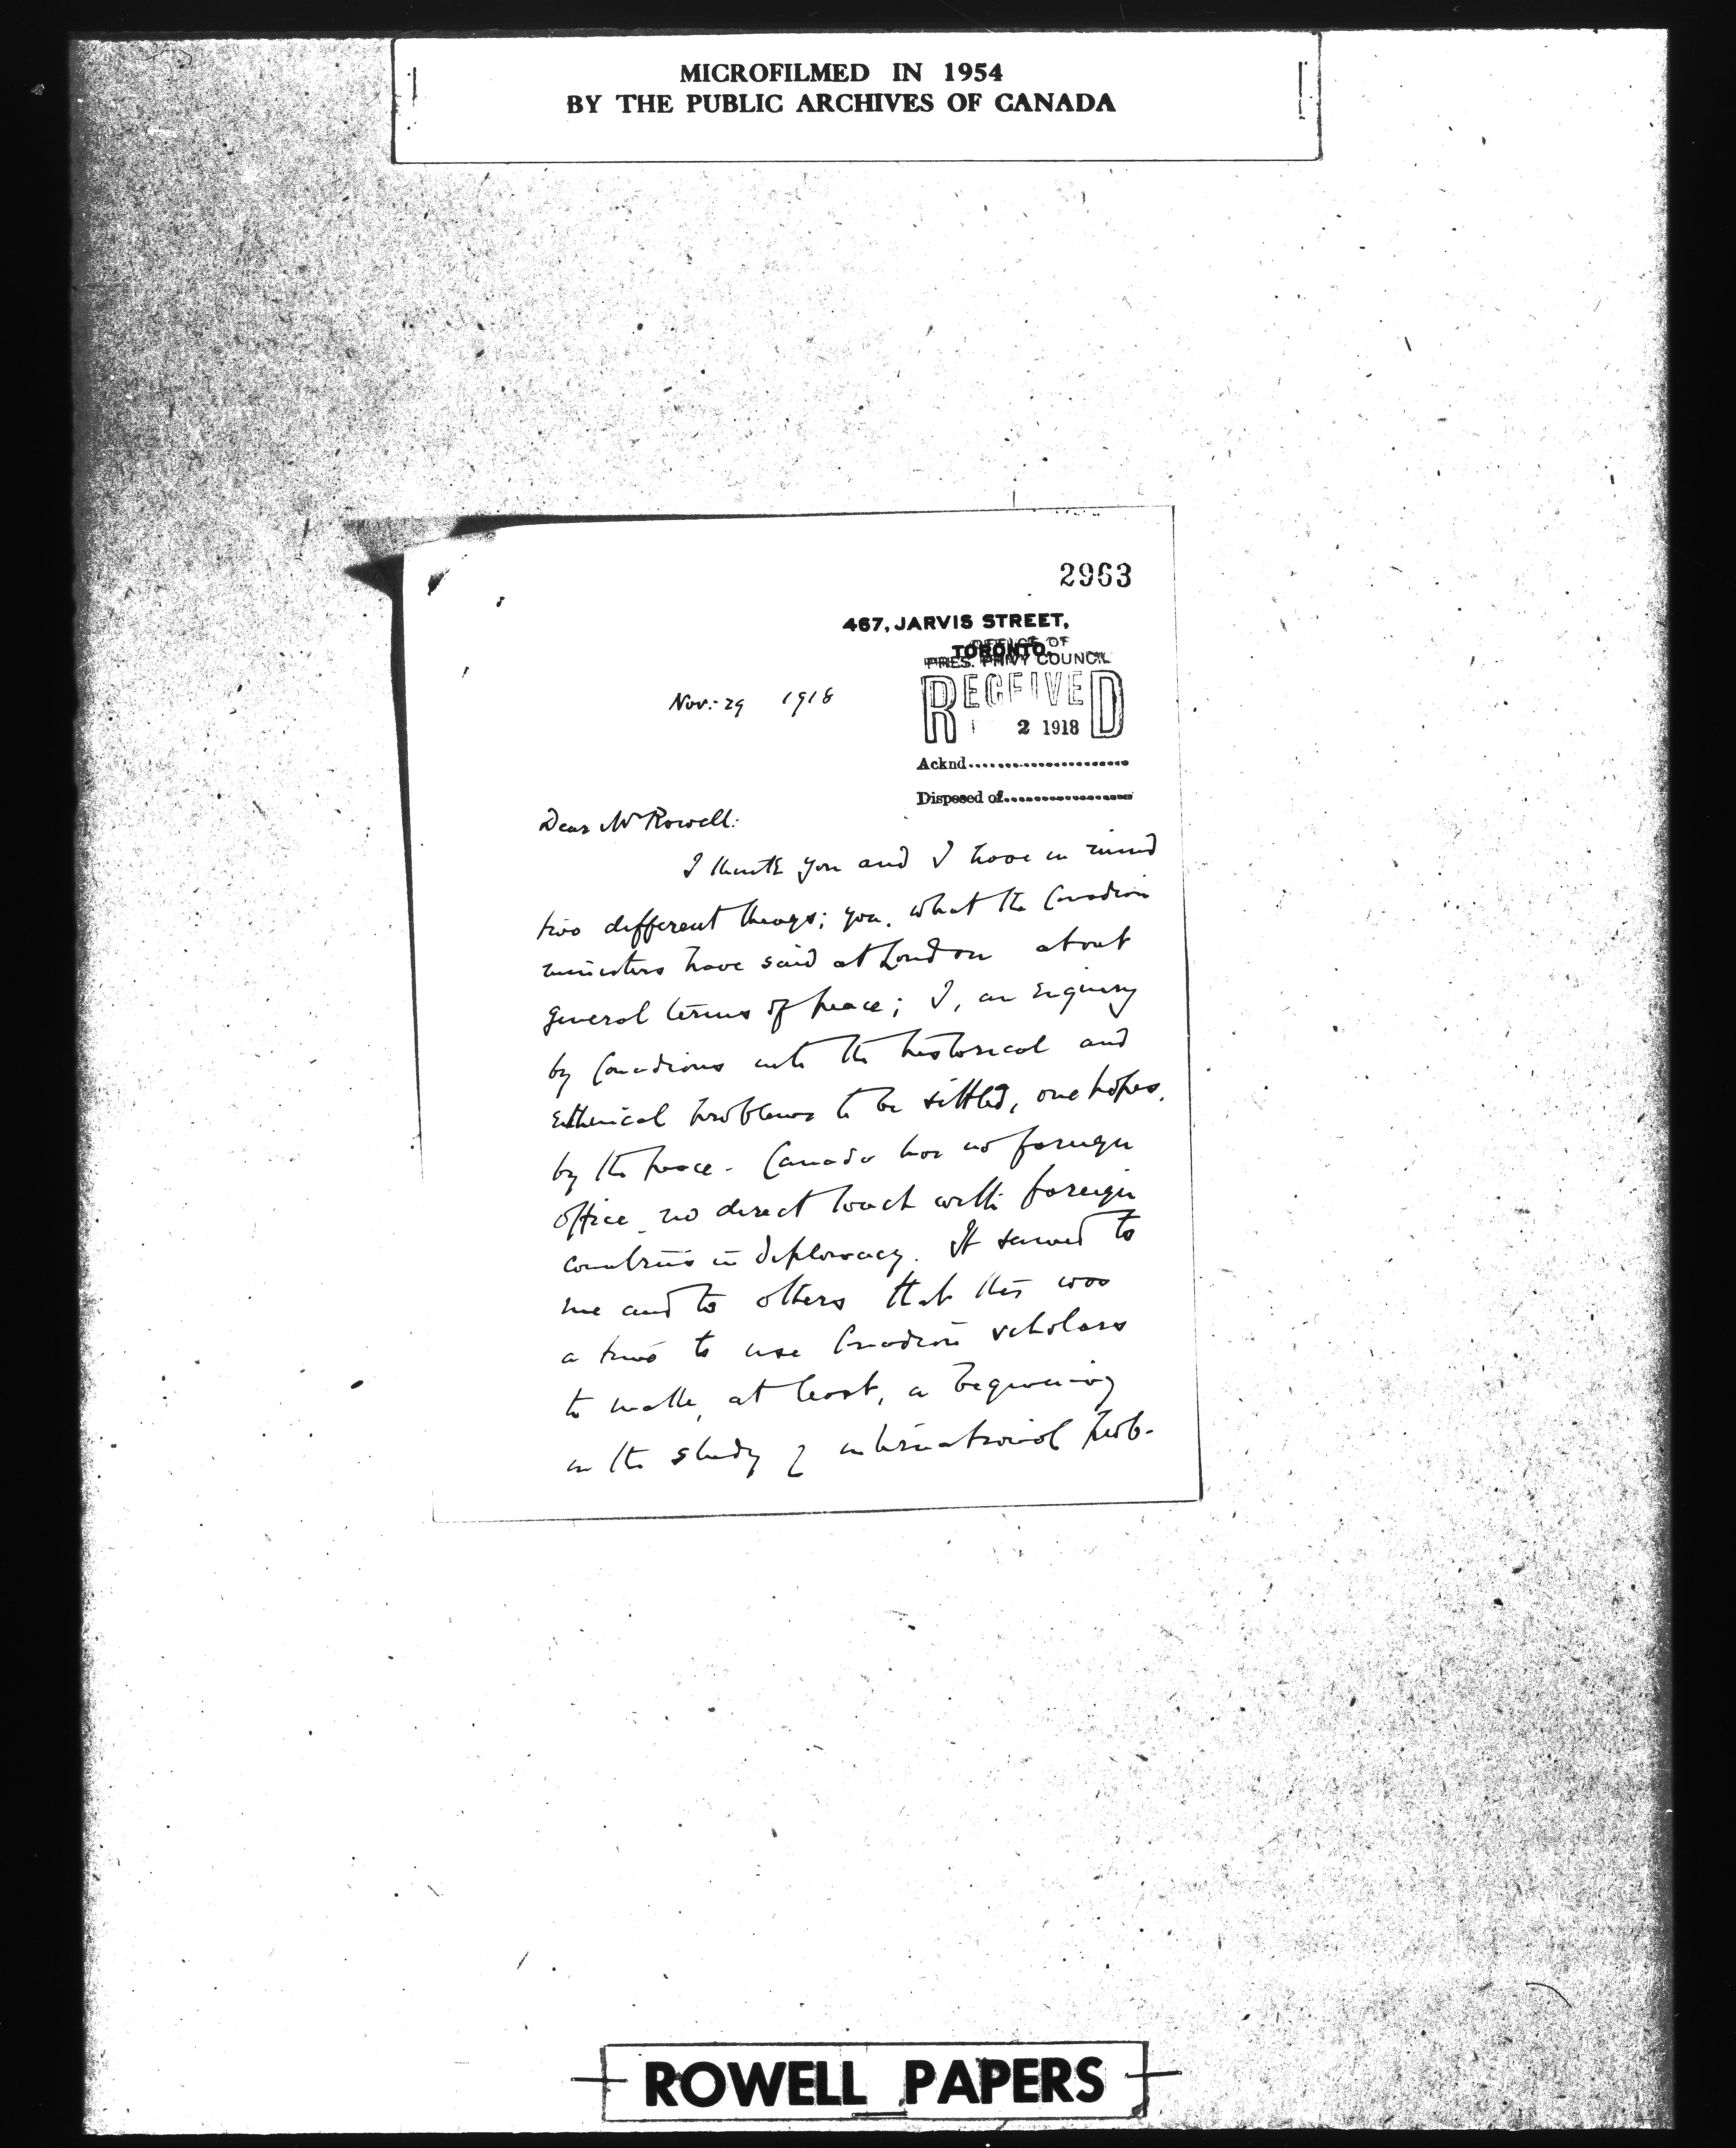 MICROFILMED IN 1954
BY THE PUBLIC ARCHIVES OF CANADA
2963
467, JARVIS STREET,
TORONTO.
OFFICE OF
PRES. PRIVY COUNCIL
RECEIVED
2 1918
Acknd
Disposed of
Nov: 29 1918
Dear Mr Rowell:
I think you and I have in mind
two different things; you, what the Canadian
ministers have said at London about
general terms of peace; I, an enquiry
by Canadians into the historical and
ethenical problems to be settled, one hopes,
by the peace. Canada has no foreign
office, no direct touch with foreign
countries in diplomacy. It seemed to
me and to others that this was
a time to use Canadian scholars
to make, at least, a beginning
in the study of international prob-
ROWELL PAPERS